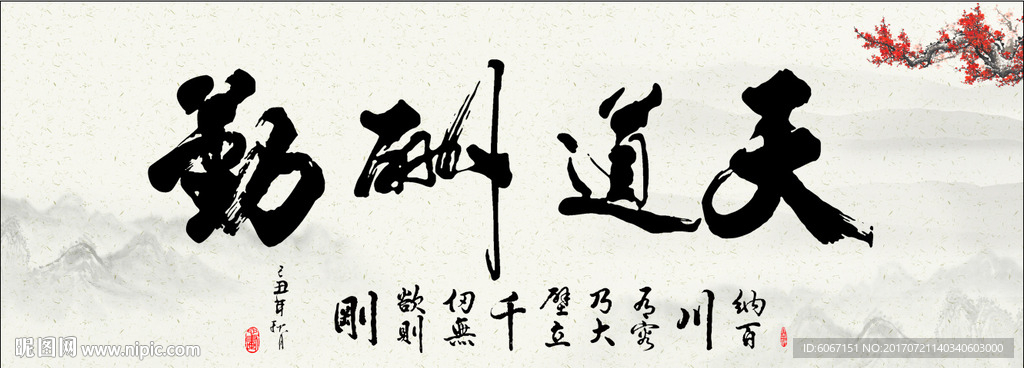 天道酬勤
納百川有容乃大壁立千仞無欲則剛
己丑年秋月
昵图网 www.nipic.com
ID:6067151 NO:20170721140340603000